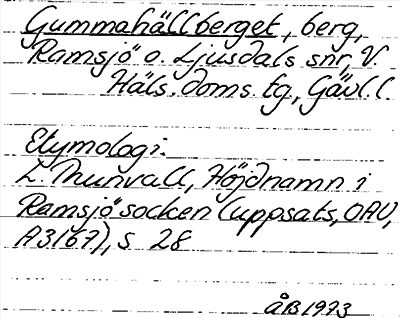 Gummahällberget, berg,
Ramsjö o. Ljusdals snr, V.
Häls. doms. tg, Gävl. l.
Etymologi.
L. Thunvall, Höjdnamn i
Ramsjö socken (uppsats, OAU,
A3167), s 28
ÅB 1973